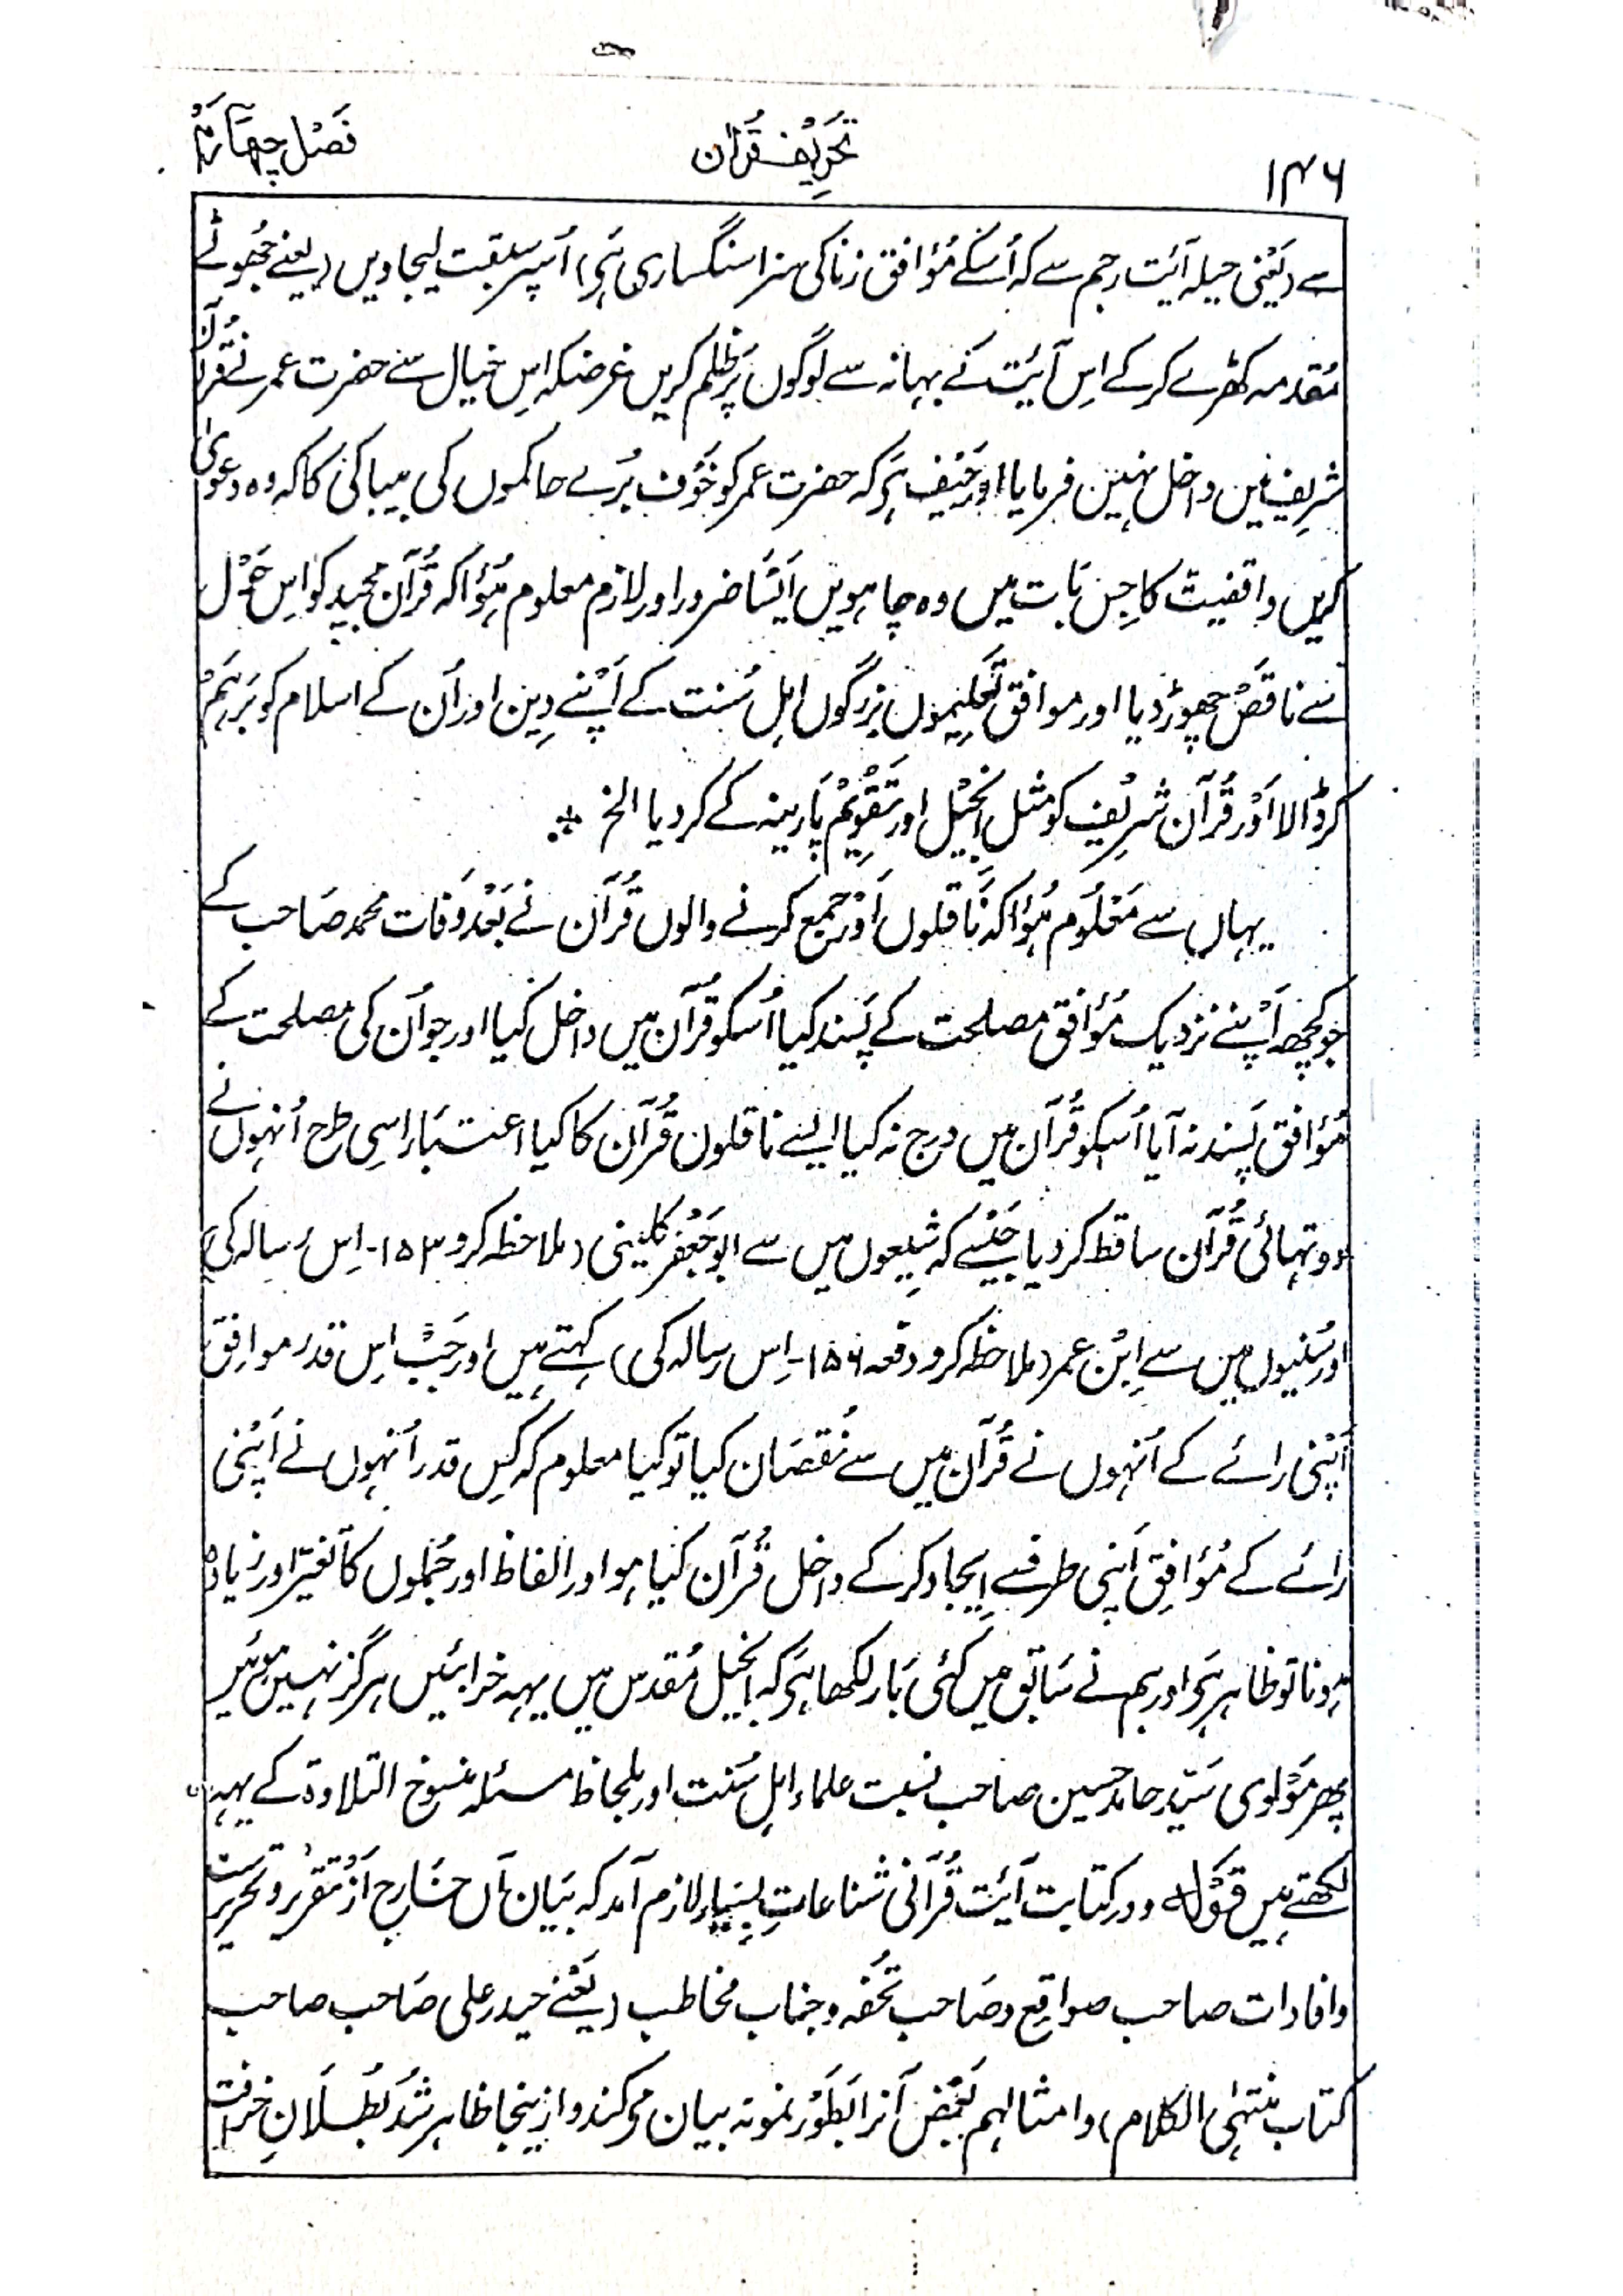 ۱۴۶ تحریف قرآن فصل چهارم
سے (یعنی حیلہ آیت رجم سے کہ اُسکے مُؤافق زنا کی سزا سنگساری ہَی) اُسپر سبقت لیجاویں (یعنے جُھوٹے
مُقدمہ کھڑے کرکے اِس آیَت کے بہانہ سے لوگوں پَر ظلم کریں غرضکہ اِس خیال سے حضرت عمر نے قُرآن
شریف میں داخل نہین فرمایا اور حَیف ہَی کہ حضرت عمر کو خَوف بُرے حاکموں کی بیباکی کا کہ وہ دعویٰ
کریں واقفیت کا جِس بَات میں وہ چاہویں اَیسَا ضرور اور لازم معلوم ہُؤا کہ قُرآن مجید کو اِس حَول
سے ناقصْ چھوڑ دیا اور موافق تَعلیِموں بزرگوں اہل سُنت کے اَپْنے دِین اور اُن کے اسلام کو بَرہَمْ
کر ڈالا اَوْر قُرآن شرِیُف کو مثل اِنجیْل اور تَقوِیْم پَارینہ کے کر دیا الخ ⁘
یہاں سے مَعْلُوم ہُؤا کہ نَاقلوں اَوْر جمع کرنے والوں قُرآن نے بَعْد وَفات محمد صَاحب کے
جو کُچھ اَپْنے نزدیک مُؤافق مصلحت کے پَسند کیا اُسکو قُرآن میں داخل کیا اور جو اُن کی مصلحت کے
مُؤافق پَسند نہ آیا اُسکو قُرآن میں درج نہ کیا ایسے ناقلوں قُرآن کا کیا اعتبَار اسِی طرح اُنہوں نے
دو تہائی قُرآن ساقط کر دیا جَیْسے کہ شِیعوں میں سے ابو جَعْفر کلینی (ملاحظہ کرو ۱۵۳۔ اِس رسالہ کی)
اور سُنیوں مین سے اِبْن عمر (ملاحظہ کرو دفعہ ۱۵۶۔ اِس رسالہ کی) کہتے ہیں اور جَبْ اِس قدر موافِق
اَپْنی رائے کے اُنہوں نے قُرآن میں سے نُقصَان کیا تو کیا معلوم کہ کِس قدر اُنہوں نے اَپْنی
رائے کے مُؤافِق اَپنی طرف سے اِیجاد کر کے داخل قُرآن کیا ہو اور الفاظ اور جُملوں کا تَغیّر اور زیادہ
ہونا تو ظاہر ہَی اور ہم نے سَابق میں کئی بَار لکھا ہَی کہ اِنجیل مُقدس میں یہہ خرابئیں ہرگز نہیں ہوئیں
پھر مَوْلوی سَیّد حامد حسین صاحب نسبت علماء اہل سُنت اور بلحاظ مسئلہ منسوخ التلاوۃ کے یہہ
لکھتے ہیں قَوْلہ و در کتابت آیَت قُرآنی شناعاتِ بسِیار لازم آمد کہ بَیان آں خَارج اَز تَقریر و تَحریر ست
و افادات صاحب صواقِع و صَاحب تُحفہ و جناب مخاطب (یَعْنے حیدر علی صَاحب صاحب
کتاب منتہی الکلام) و امثالہم بَعْض آنرا بَطَوْر نمونہ بیان می کند و ازینجا ظاہر شُد بُطْلَانِ خرافت